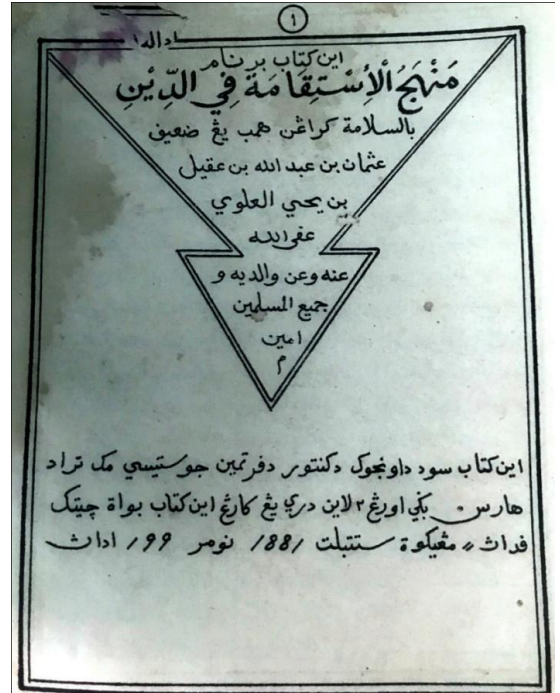 ١
اداله
اين كتاب برنام
مَنْهَجُ الْأِسْتِقَامَةِ فِي الدِّيْنِ
بالسلامة كراڠن همب يڠ ضعيف
عثمان بن عبد الله بن عقيل
بن يحيى العلوي
عفى الله
عنه وعن والديه و
جميع المسلمين
امين
م
اين كتاب سود داونجوك دكنتور دفرتمين جوستيسي مك تراد
هارس بݢي اورڠ ٢ لاين دري يڠ كارڠ اين كتاب بواة چيتق
فداڽ مڠيكوة ستتبلت /88/ نومر 99/ اداڽ